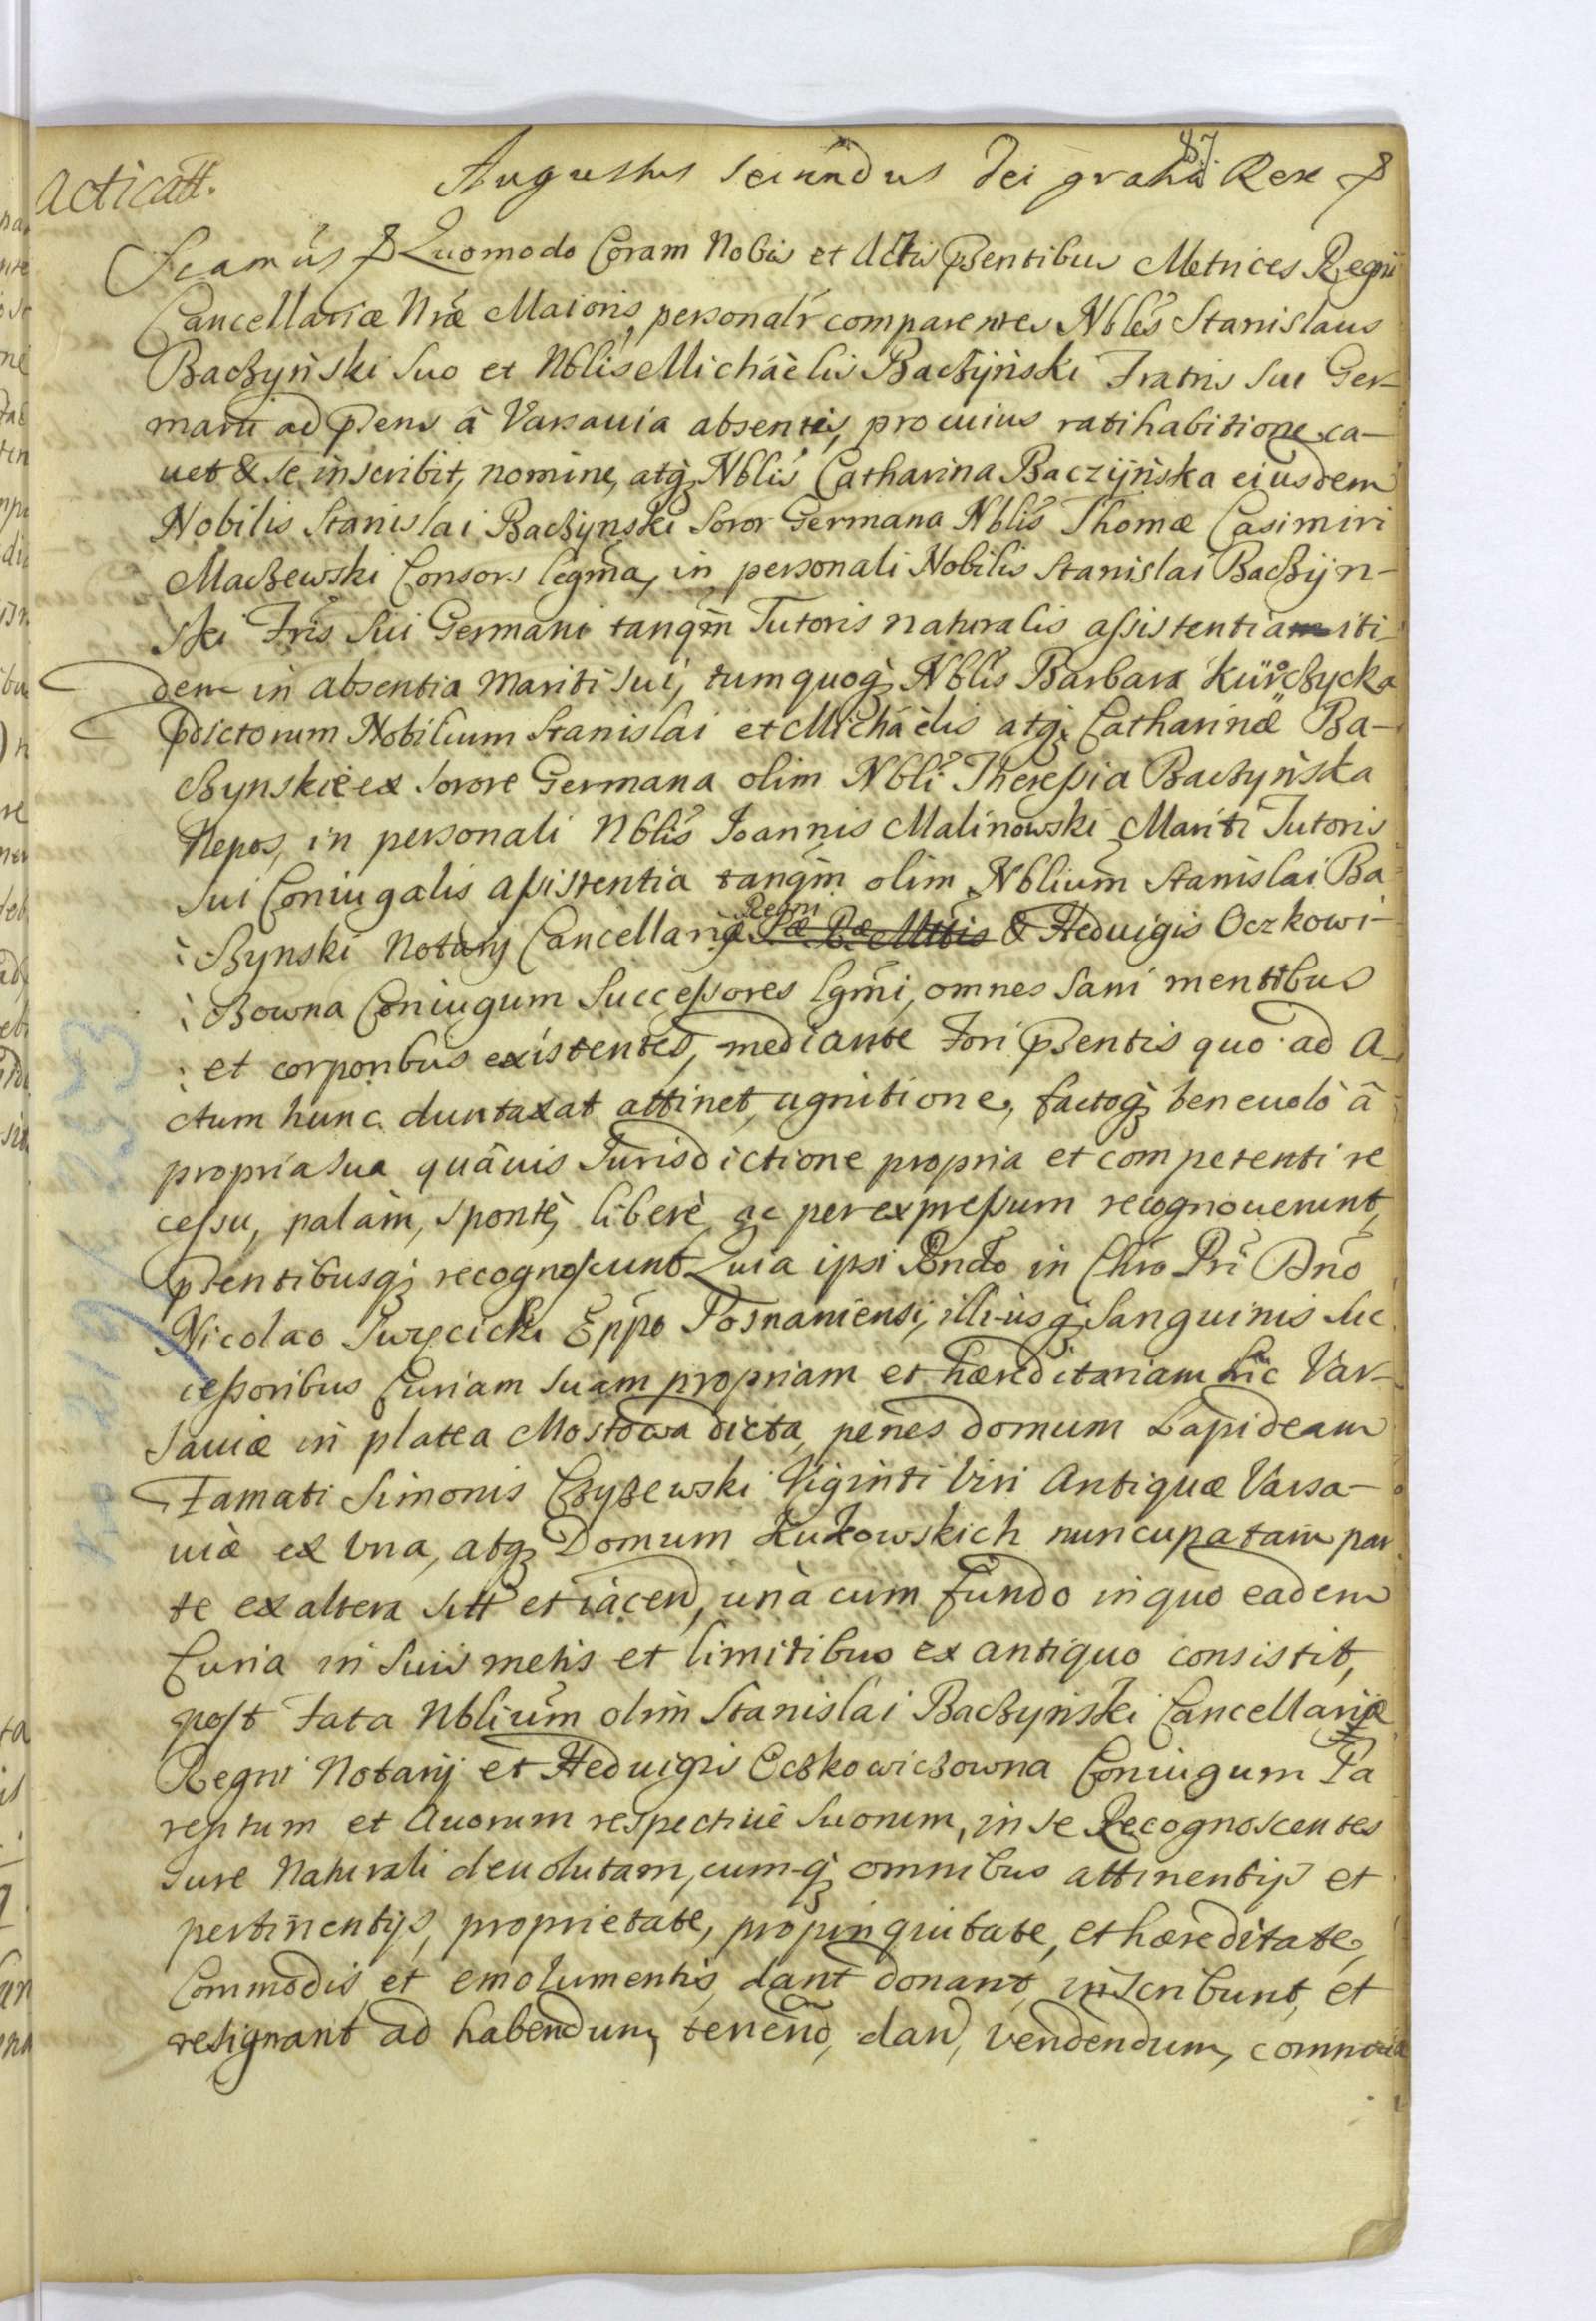 87
acticatt.
Augustus Secundus Dei gratia Rex
Quomodo Coram Nobis et Actis psentibus Metrices Regni
Cancellariæ Nræ Maioris, personalr comparentes Nbles Stanislaus
Baczyński suo et Nblis Michäèlis Baczyński Fratris sui Ger-
mani ad psens à Varsavia absentis, pro cuius ratihabitione ca-
uet & se inscribit, nomine, atq Nblis Catharina Baczÿńska eiusdem
Nobilis Stanislai Baczynski Soror Germana Nblis Thomæ Casimiri
Maczewski Consors legma, in personali Nobilis Stanislai Baczÿn-
ski Fris sui Germani tanqm Tutoris naturalis assistentia iti-
dem in absentia Mariti sui, tum quoq Nblis Barbara
pdictorum Nobilium Stanislai et Michäèlis atq Catharinæ Ba-
czynskie ex Sorore Germana olim Nbli Theressia Baczyńska
Nepos, in personali Nblis Joannis Malinowski Mariti Tutoris
sui Coniugalis assistentia tanqm olim Nblium Stanislai Ba
czynski Notarÿ Cancellariæ Regni & Heduigis Oczkowi-
czowna Coniugum Successores lgmi, omnes sani mentibus
et corporibus existentes, mediante Fori psentis quo ad A-
ctum hunc duntaxat attinet, agnitione, factoq beneuolò â
propria sua quâuis Jurisdictione propria et competenti re
cessu, palàm, spontè, liberè ac per expressum recognouerunt,
psentibusq recognoscunt Quia ipsi Rndo in Chro Pri Dno
Nicolao Swÿcicki Eppo Posnaniensi, illiusq Sanguinis Suc
cessoribus Curiam suam propriam et hæreditariam hic Var-
sauiæ in platea Mostowa dicta, penes domum Lapideam
Famati Simonis Czyzewski Viginti Viri Antiquæ Varsa-
uiæ ex vna, atq Domum Zukowskich nuncupatam par
te ex altera sitt et iacend, unà cum fundo in quo eadem
Curia in suis metis et limitibus ex antiquo consistit,
post Fata Nblium olim Stanislai Baczynski Cancellariæ
Regni Notarÿ et Heduigis Oczkowiczowna Coniugum Pa
rentum et Auorum respectiuè suorum, in se Recognoscentes
Jure Naturali deuolutam, cum-q omnibus attinentÿs et
pertinentÿs, proprietate, propinquitate, et hæreditate,
Commodis et emolumentis, dant donant, inscribunt, et
resignant ad habendum, tenend, dand, vendendum,